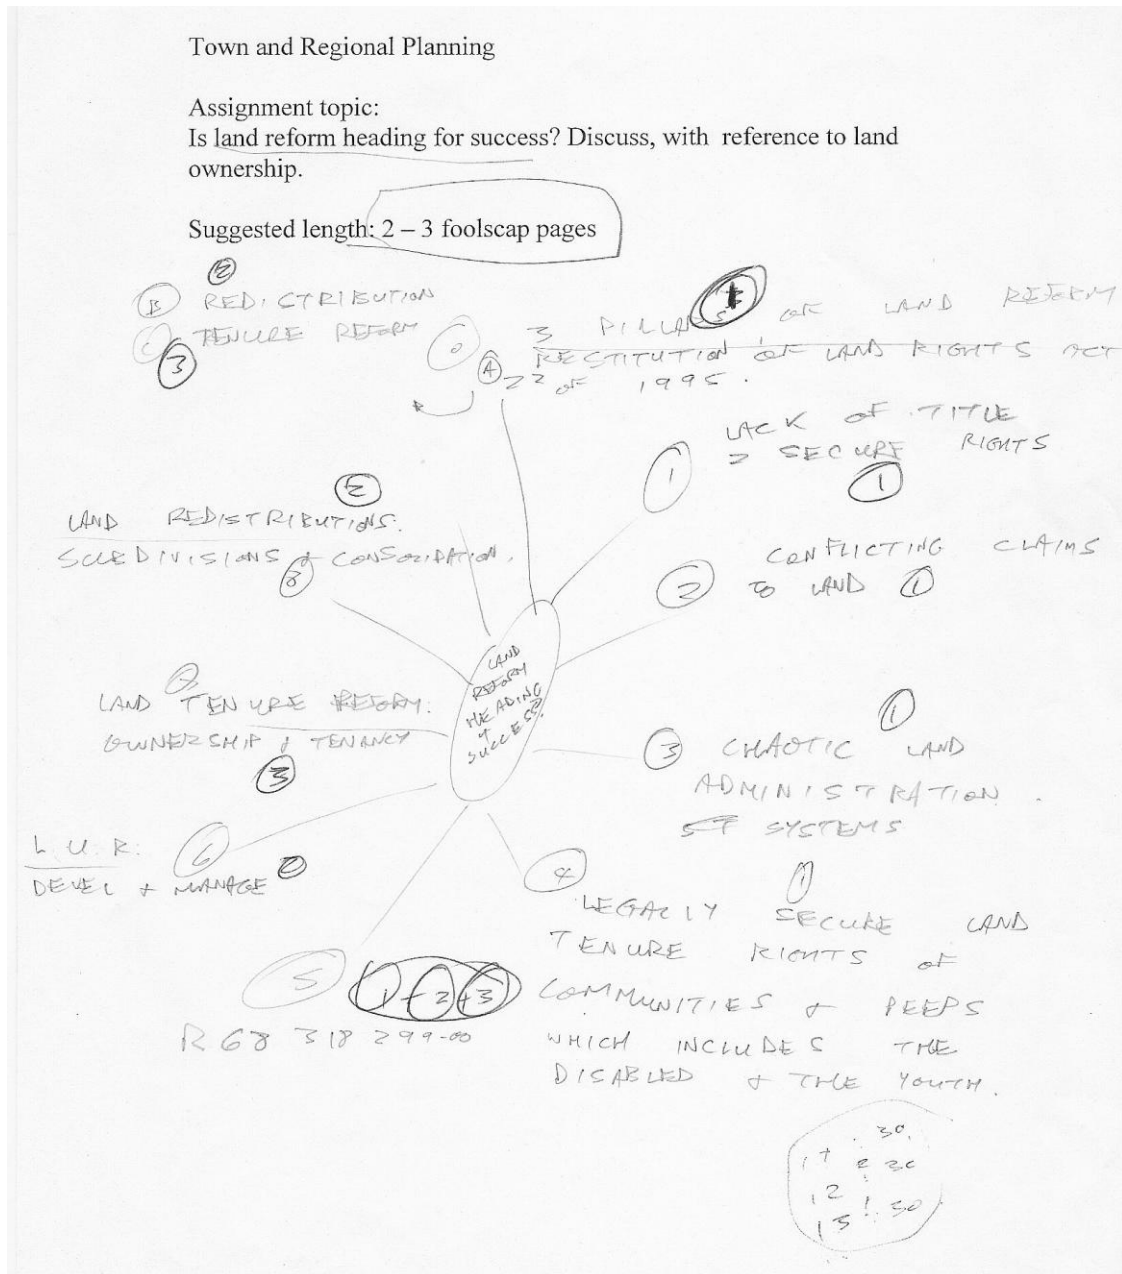 Town and Regional Planning
Assignment topic:
Is land reform heading for success? Discuss, with reference to land
ownership.
Suggested length: 2 – 3 foolscap pages
2
B REDISTRIBUTION
C TENURE REFORM
3
0 3 PILLARS OF LAND REFORM
A RESTITUTION OF LAND RIGHTS ACT
22 OF 1995.
1 LACK OF TITLE
SECURE RIGHTS
1
2 CONFLICTING CLAIMS
TO LAND 1
2
LAND REDISTRIBUTIONS.
SUBDIVISIONS & CONSOLIDATION.
8
LAND
REFORM
HEADING
4
SUCCESS?
7
LAND TENURE REFORM.
OWNERSHIP & TENANCY
3
1
3 CHAOTIC LAND
ADMINISTRATION
SYSTEMS
L.U.R. 6
DEVEL & MANAGE
4 1
LEGALLY SECURE LAND
TENURE RIGHTS OF
COMMUNITIES & PEEPS
WHICH INCLUDES THE
DISABLED & THE YOUTH.
5 1 + 2 + 3
R 68 318 299-00
30